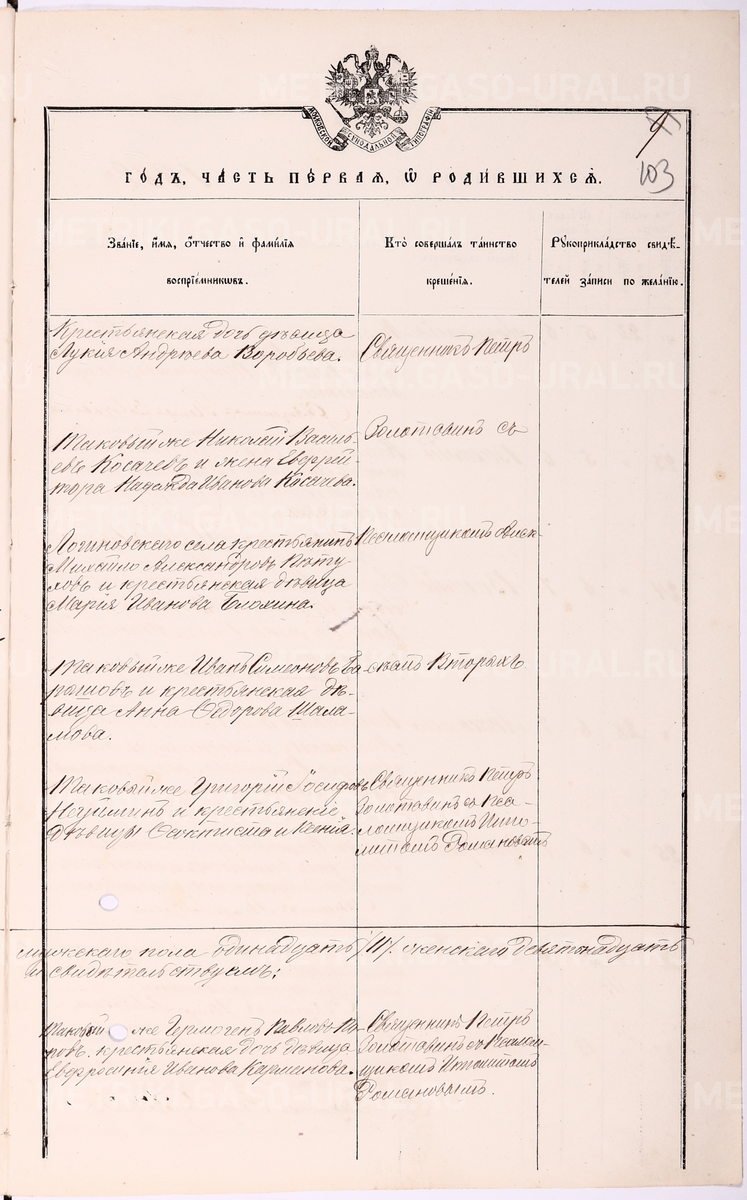 МОСКОВСКОЙ СУНОДАЛЬНОЙ ТИПОГРАФІИ
103
ГО́ДЪ, ЧА́СТЬ ПЕ́РВАЯ, Ѽ РОДИ́ВШИХСЯ.
Зва́нїе, и́мя, о́тчество и фами́лїя
воспрїе́мникωвъ.
Кто̀ соверша́лъ та́инство
креще́нїя.
Рꙋкоприкла́дство свидѣ́-
телей за́писи по жела́нїю.
Крестьянская дочь дѣвица
Лукія Андреева Воробьева.
Священникъ Петръ
Таковый же Николай Василь-
евъ Косачевъ и жена Ефрей-
тора Надежда Иванова Косачева.
Золотавинъ съ
Логиновскаго села крестьянинъ
Михаило Александровъ Пѣту-
ховъ и крестьянская дѣвица
Марія Иванова Блохина.
Псаломщикомъ
Таковый же Иванъ Симеоновъ Ба-
рашовъ и крестьянская дѣ-
вица Анна Ѳедорова Шала-
мова.
Вторыхъ
Таковый же Григорій Іосифовъ
и крестьянскіе
дѣвицы Ѳеоктиста и Ксенія.
Священникъ Петръ
Золотавинъ съ Пса-
ломщикомъ Иппо-
литомъ Романовымъ
мужескаго пола одинадцать /11/. женскаго девятнадцать
и свидѣтельствуемъ:
Таковый же Гермогенъ Павловъ
крестьянская дочь дѣвица
Евфросинія Иванова Карманова.
Священникъ Петръ
Золотавинъ съ Псалом-
щикомъ Ипполитомъ
Романовымъ.
METRIKI.GASO-URAL.RU